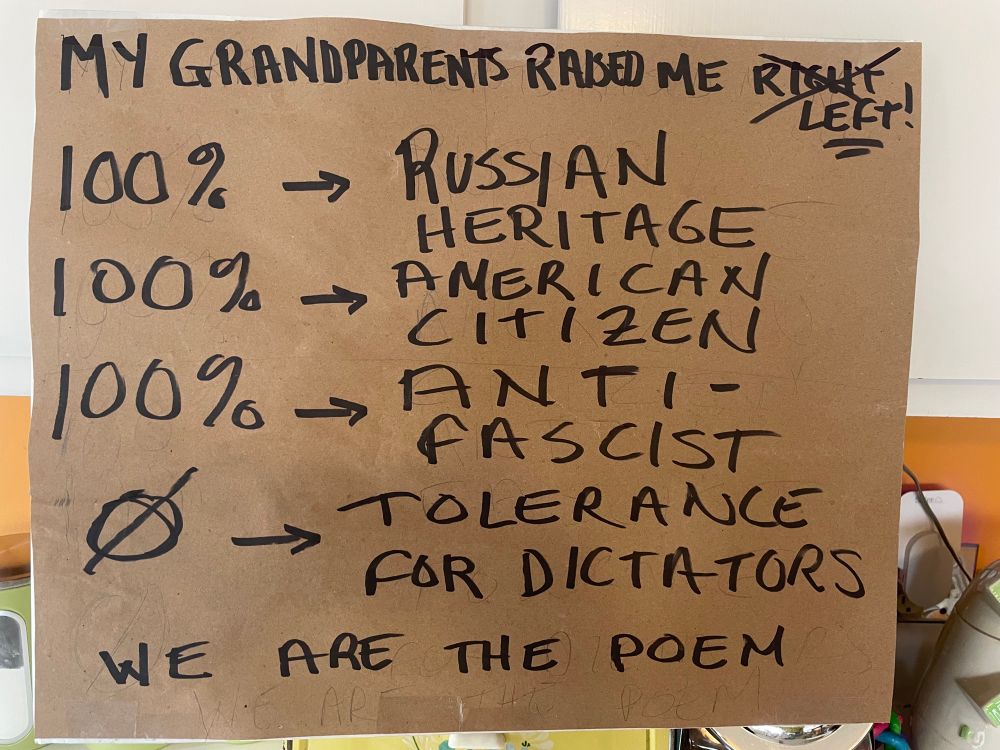 MY GRANDPARENTS RAISED ME RIGHT
LEFT!
100% → RUSSIAN
HERITAGE
100% → AMERICAN
CITIZEN
100% → ANTI-
FASCIST
Ø → TOLERANCE
FOR DICTATORS
WE ARE THE POEM
WE ARE THE POEM